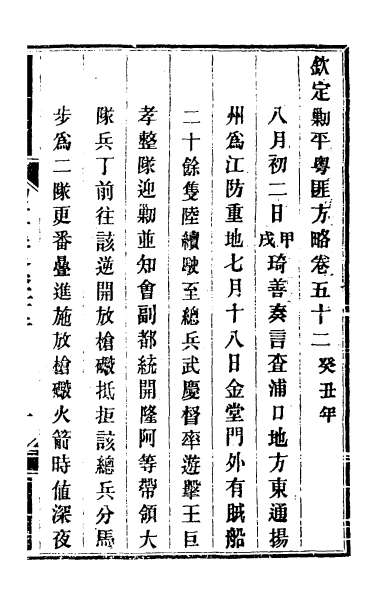 欽定勦平粵匪方略卷五十二 癸丑年
八月初二日甲戌琦善奏言查浦口地方東通揚
州爲江防重地七月十八日金堂門外有賊船
二十餘隻陸續駛至總兵武慶督率遊擊王巨
孝整隊迎勦並知會副都統開隆阿等帶領大
隊兵丁前往該逆開放槍礮抵拒該總兵分馬
步爲二隊更番疊進施放槍礮火箭時値深夜